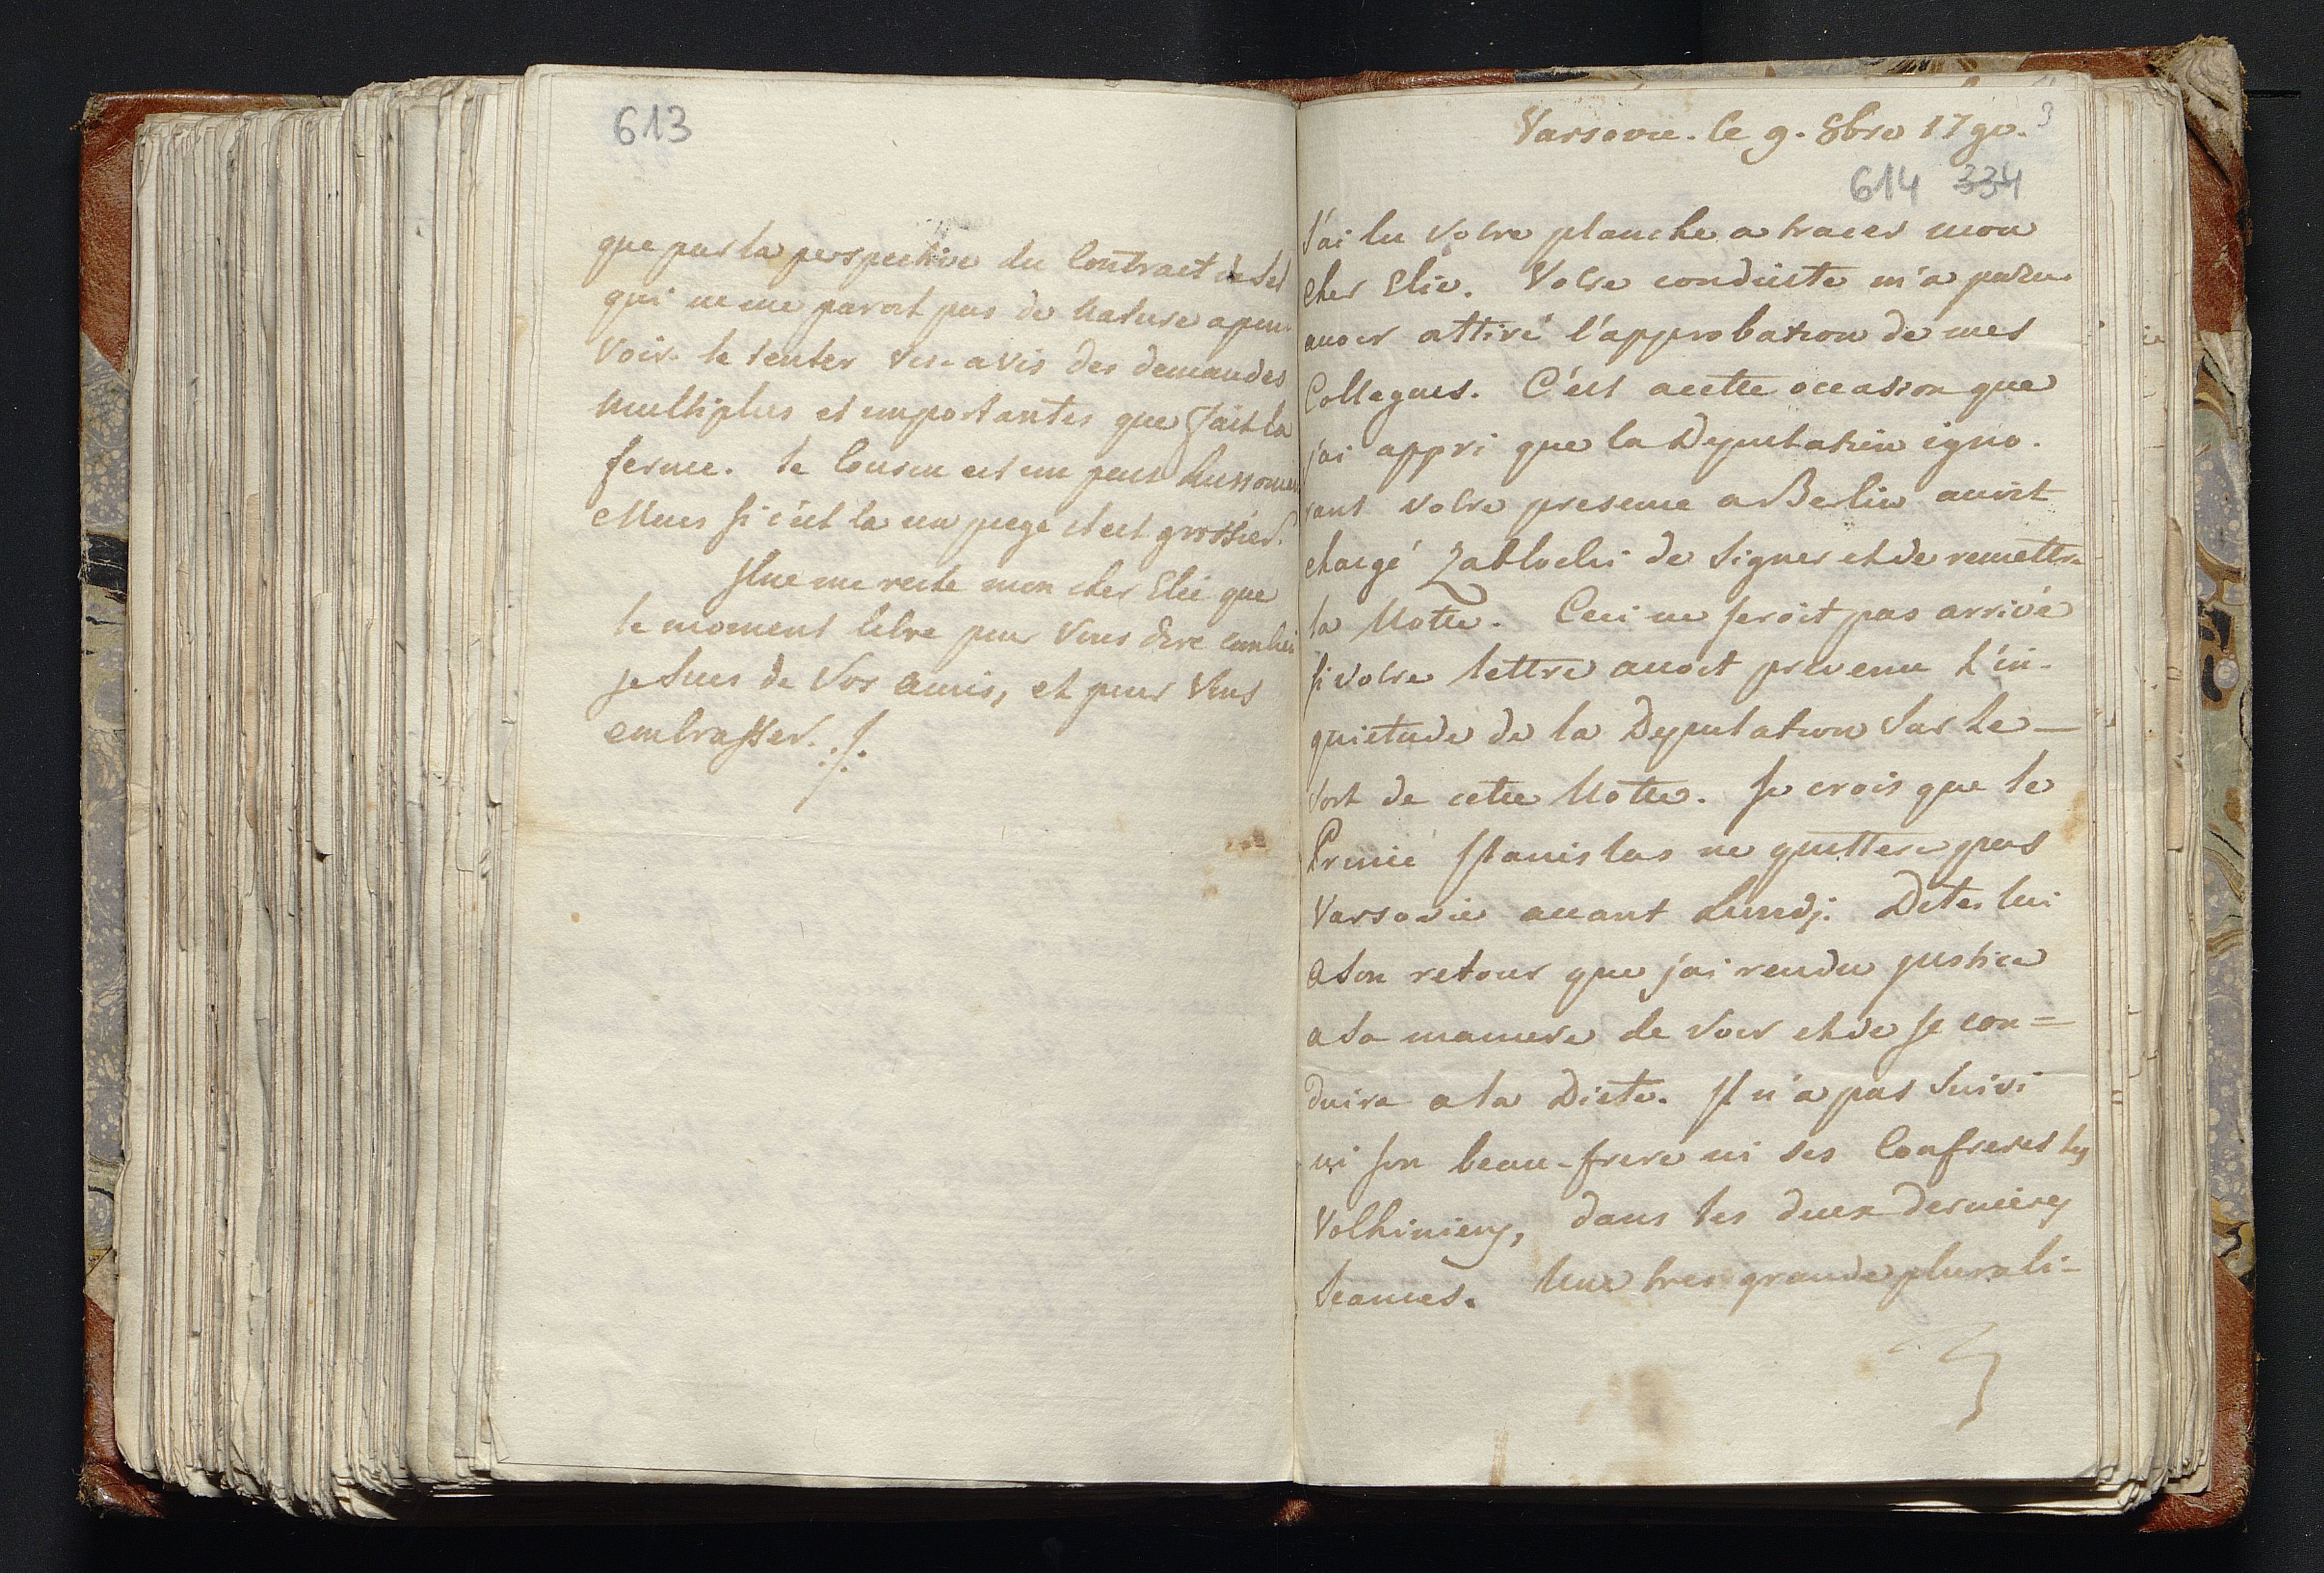 613
que par la perspective du Contract de Sel
qui ne me paroit pas de Nature a pou
voir le tenter vis-a vis des demandes
Multiplies et importantes que fait la
ferme. Le Cousin est un peu
Mais si c'est la un piege il est grossier.
Il ne me reste mon cher Elie que
le moment libre pour Vous dire combien
je Suis de Vos amis, et pour Vous
embrasser. ./.
Varsovie. le 9. 8bre 1790. 3
614 334
J'ai lu Votre planche a tracer mon
cher Elie. Votre conduite m'a paru
avoir attiré l'approbation de mes
Collegues. C'est a cette occasion que
j'ai appri que la Deputation igno-
rant votre presence a Berlin avoit
chargé Zablocki de Signer et de remettre
la Notte. Ceci ne seroit pas arrivé
si votre lettre avoit prevenu l'in-
quietude de la Deputation Sur le
Sort de cette Notte. Je crois que le
Prince Stanislas ne quittera pas
Varsovie avant Lundj. Dites lui
a Son retour que j'ai rendu justice
a Sa maniere de Voir et de se con=
duire a la Diete. Il n'a pas Suivi
ni son beau-frere ni ses Confreres les
Volhiniens, dans les deux dernieres
Seances. Une tres grande plurali-